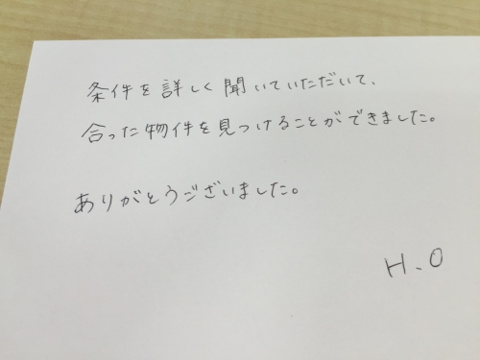 条件を詳しく聞いていただいて、
合った物件を見つけることができました。
ありがとうございました。
H.O